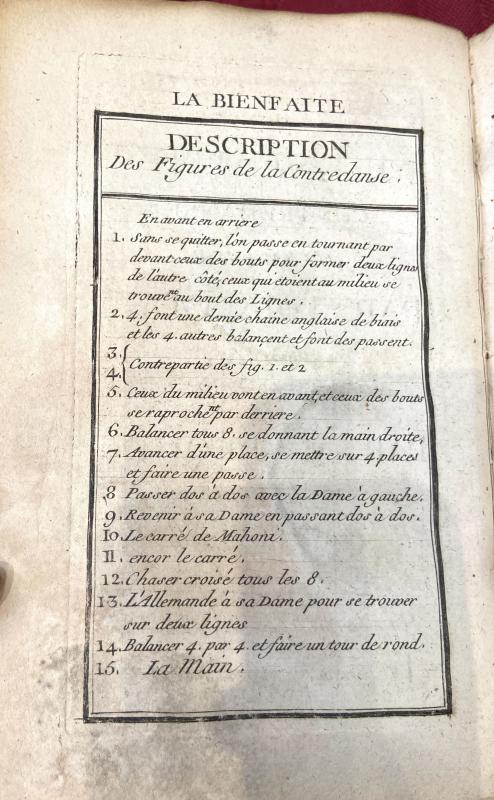 LA BIENFAITE
DESCRIPTION
Des Figures de la Contredanse.
En avant en arriere
1. Sans se quitter, l'on passe en tournant par
devant ceux des bouts pour former deux lignes
de l'autre côté, ceux qui étoient au milieu se
trouve.nt au bout des Lignes.
2. 4. font une demie chaine anglaise de biais
et les 4. autres balançent et font des passent.
3.
4. Contrepartie des fig. 1. et 2
5. Ceux du milieu vont en avant, et ceux des bouts
se raproche.nt par derriere.
6. Balancer tous 8. se donnant la main droite,
7. Avancer d'une place, se mettre sur 4 places
et faire une passe.
8 Passer dos à dos avec la Dame à gauche.
9. Revenir à sa Dame en passant dos à dos.
10. Le carré de Mahoni.
11. encor le carré.
12. Chaser croisé tous les 8.
13. L'Allemande à sa Dame pour se trouver
sur deux lignes
14. Balancer 4. par 4. et faire un tour de rond.
15. La Main.